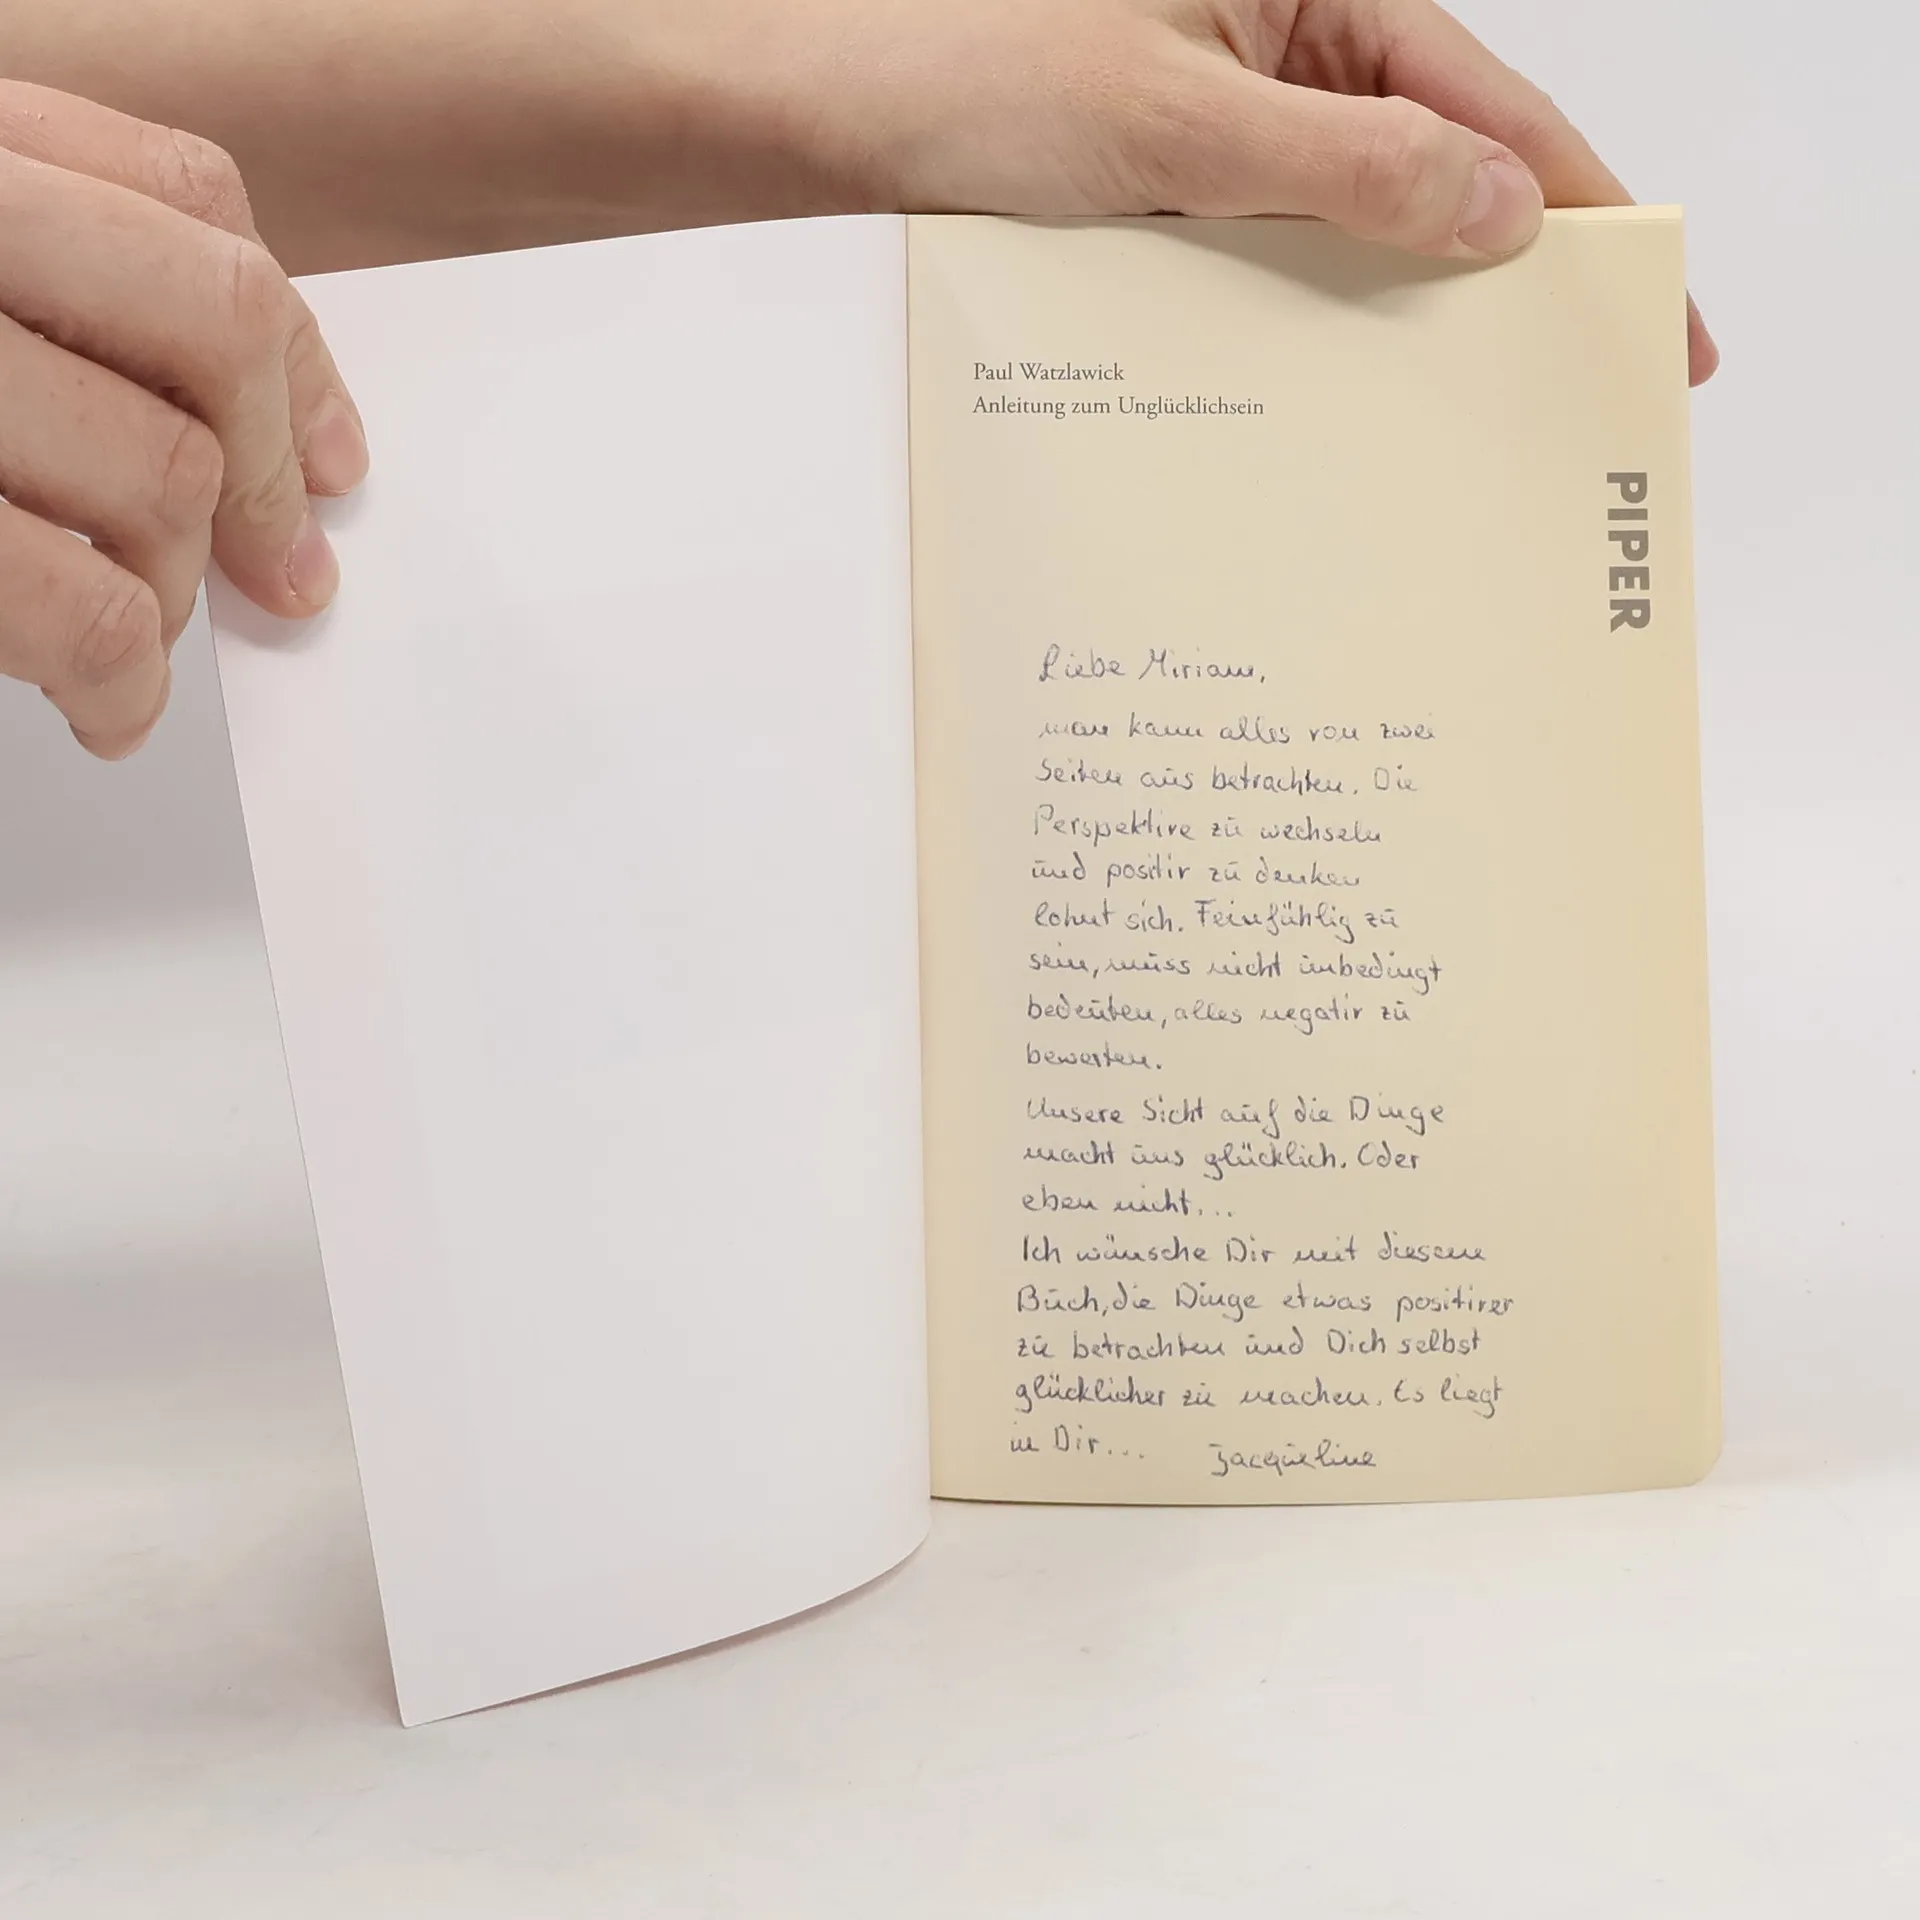 Paul Watzlawick
Anleitung zum Unglücklichsein
PIPER
Liebe Miriam,
man kann alles von zwei
Seiten aus betrachten. Die
Perspektive zu wechseln
und positiv zu denken
lohnt sich. Feinfühlig zu
sein, muss nicht unbedingt
bedeuten, alles negativ zu
bewerten.
Unsere Sicht auf die Dinge
macht uns glücklich. Oder
eben nicht...
Ich wünsche Dir mit diesem
Buch, die Dinge etwas positiver
zu betrachten und Dich selbst
glücklicher zu machen. Es liegt
in Dir... Jacqueline